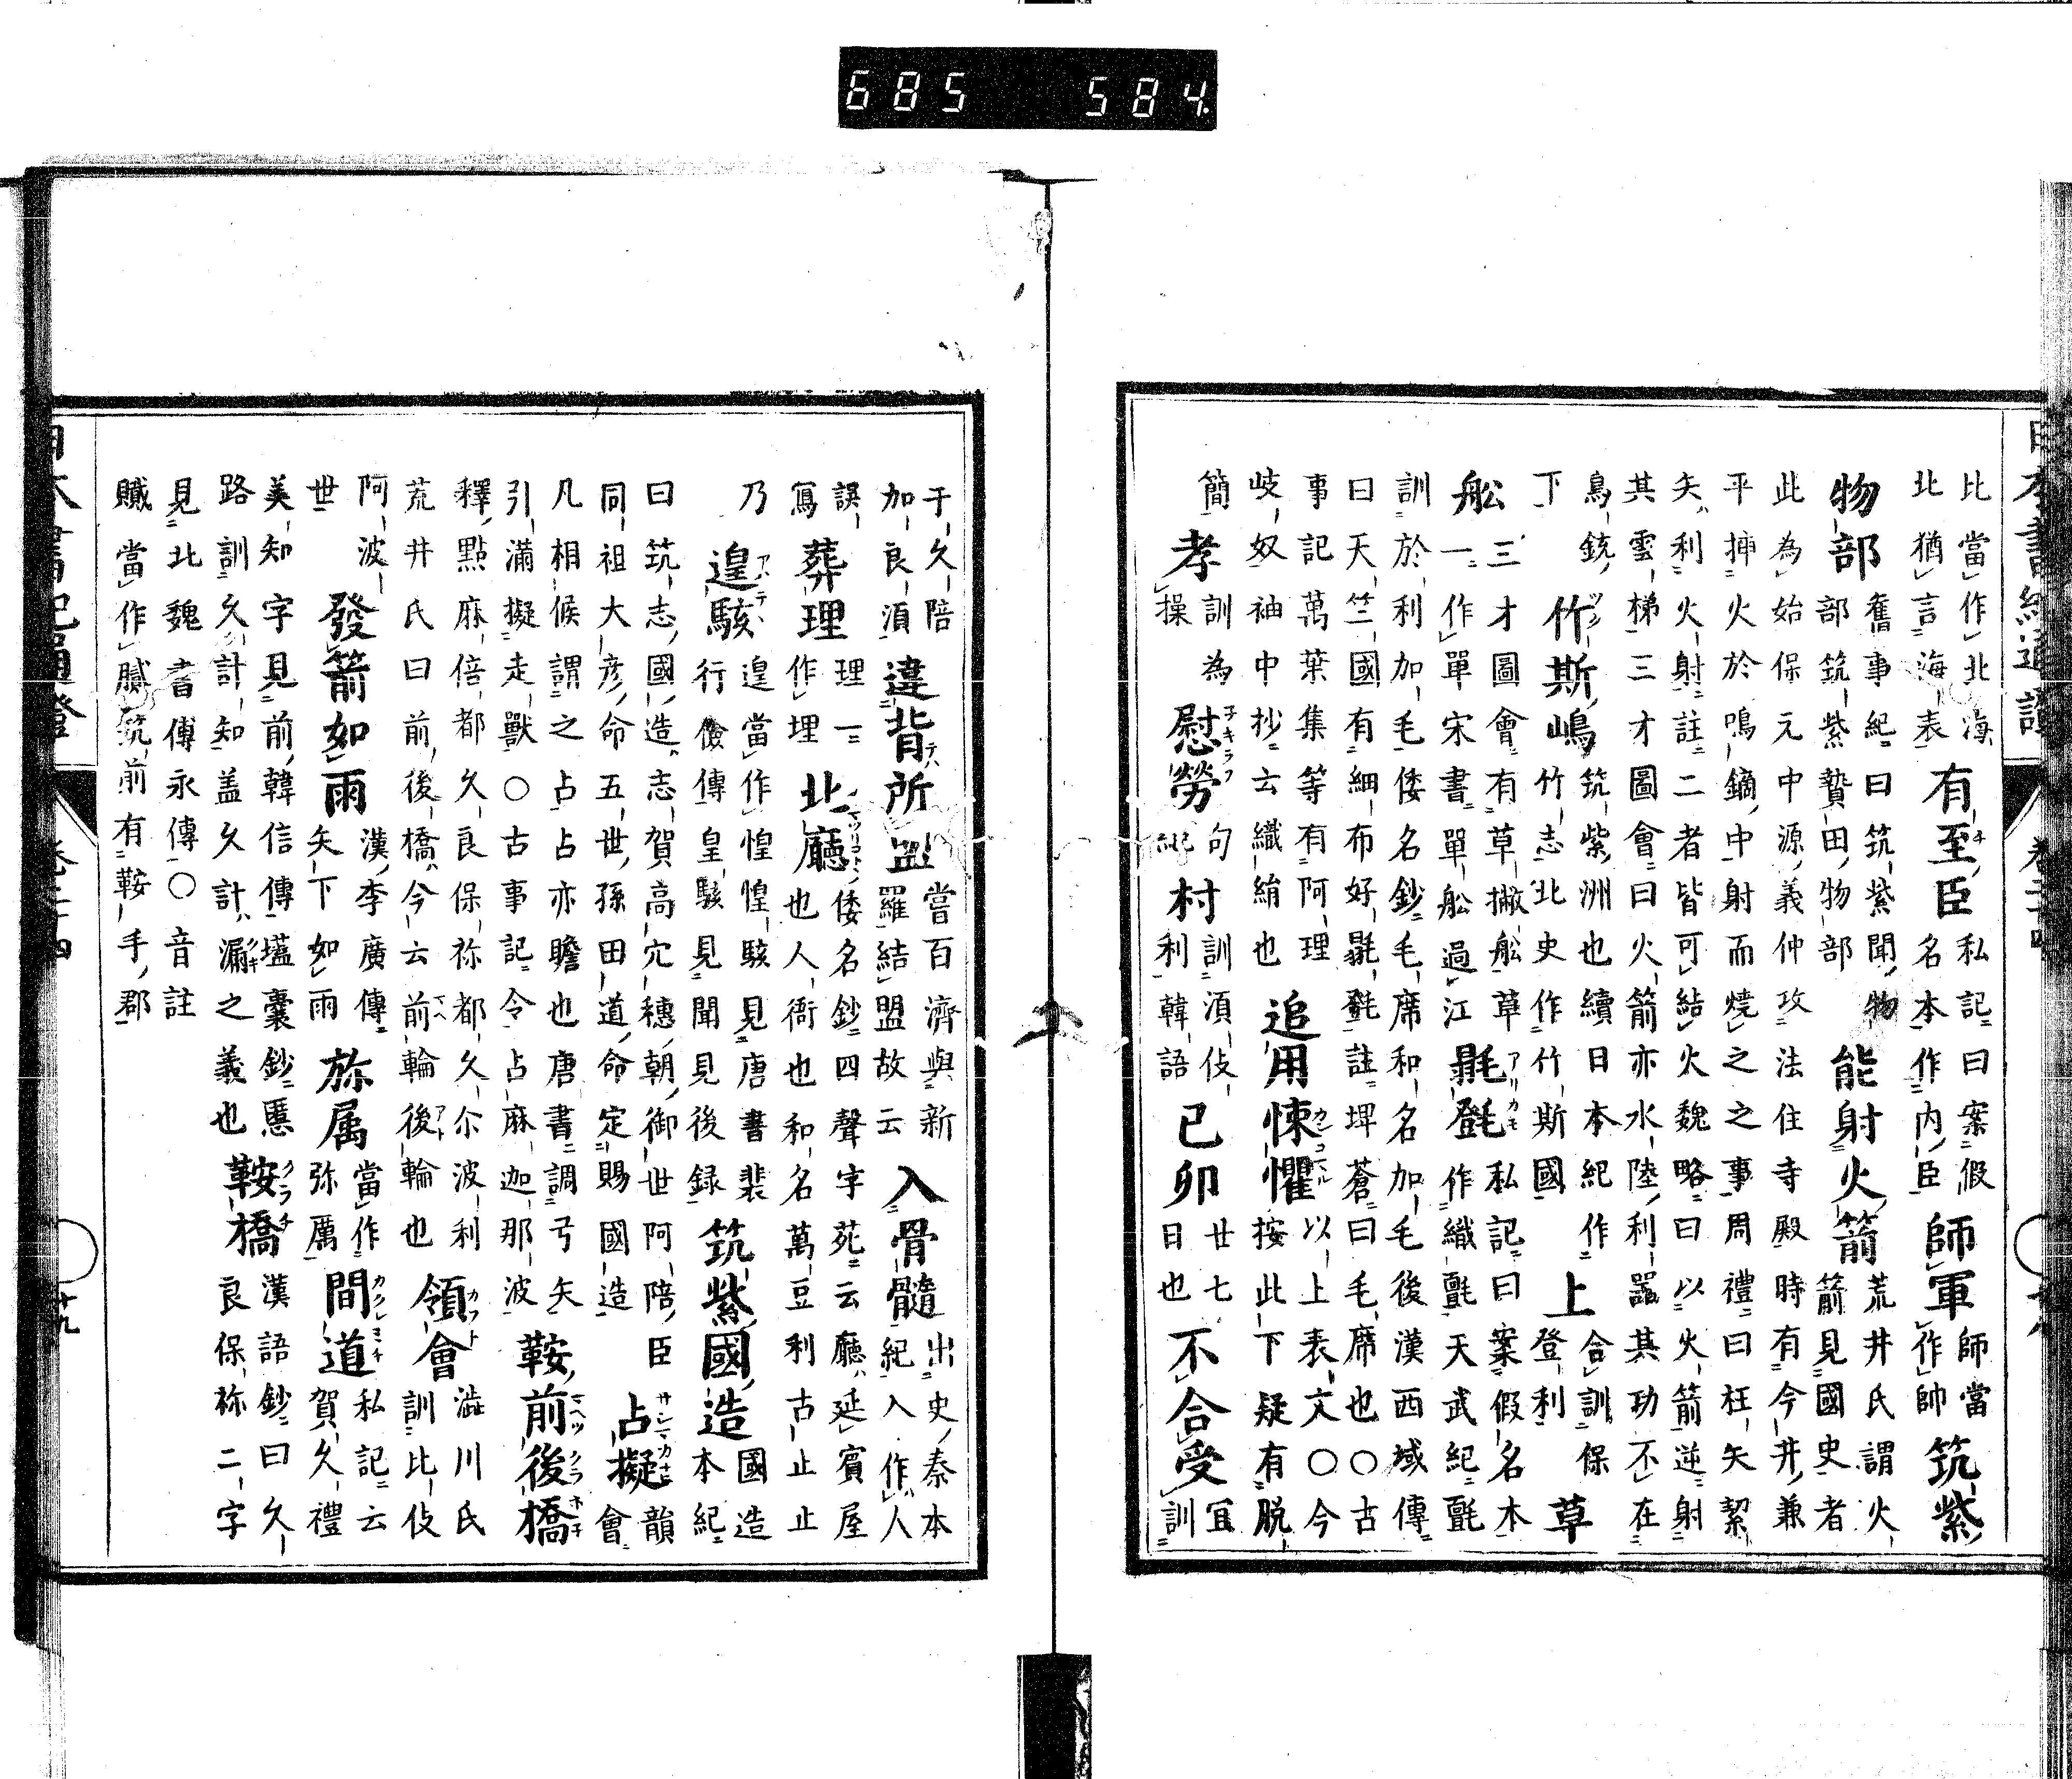 685 584
比當作北海
北猶言海表
有至臣
私記曰案假
名本作内臣
師軍
師當
作帥
筑紫
物部
舊事紀曰筑紫聞物
部筑紫贄田物部
能射火箭
荒井氏謂火
箭見國史者
此為始保元中源義仲攻法住寺殿時有今井兼
平挿火於鳴鏑中射而燒之之事周禮曰枉矢絜
矢利火射註二者皆可結火魏略曰以火箭逆射
其雲梯三才圖會曰火箭亦水陸利噐其功不在
鳥銃
下
竹斯嶋
筑紫洲也續日本紀作
竹志北史作竹斯國
上
合訓保
登利
草
舩
三才圖會有草撇舩草
一作單宋書單舩過江
毾㲪
私記曰案假名木
作織氈天武紀氈
訓於利加毛倭名鈔毛席和名加毛後漢西域傳
曰天竺國有細布好毾㲪註埤蒼曰毛席也〇古
事記萬葉集等有阿理
岐奴袖中抄云織絹也
追用悚懼
以上表文〇今
按此下疑有脱
簡
孝
訓為
操
慰勞
句
絶
村
訓湏伎
利韓語
已卯
廿七
日也
不合受
冝
訓
于久陪
加良湏
違背所盟
當百濟與新
羅結盟故云
入骨髓
出史秦本
紀入作人
誤
寫
葬理
理一
作埋
北廳
倭名鈔四聲字苑云廳延賓屋
也人衙也和名萬豆利古止止
乃
遑駭
遑當作惶惶駭見唐書裴
行儉傳皇駭見聞見後録
筑紫國造
國造
本紀
曰筑志國造志賀高穴穗朝御世阿陪臣
同祖大彦命五世孫田道命定賜國造
占擬
韻
會
凡相候謂之占占亦瞻也唐書調弓矢
引滿擬走獸〇古事記令占麻迦那波
鞍前後橋
釋點麻倍都久良保祢都久尓波利
荒井氏曰前後橋今云前輪後輪也
領會
澁川氏
訓比伎
阿波
世
發箭如雨
漢李廣傳
矢下如雨
旀属
當作
弥厲
間道
私記云
賀久禮
美知字見前韓信傳壒囊鈔慝
路訓久計知盖久計漏之義也
鞍橋
漢語鈔曰久
良保祢二字
見北魏書傅永傳〇音註
贜當作膩筑前有鞍手郡